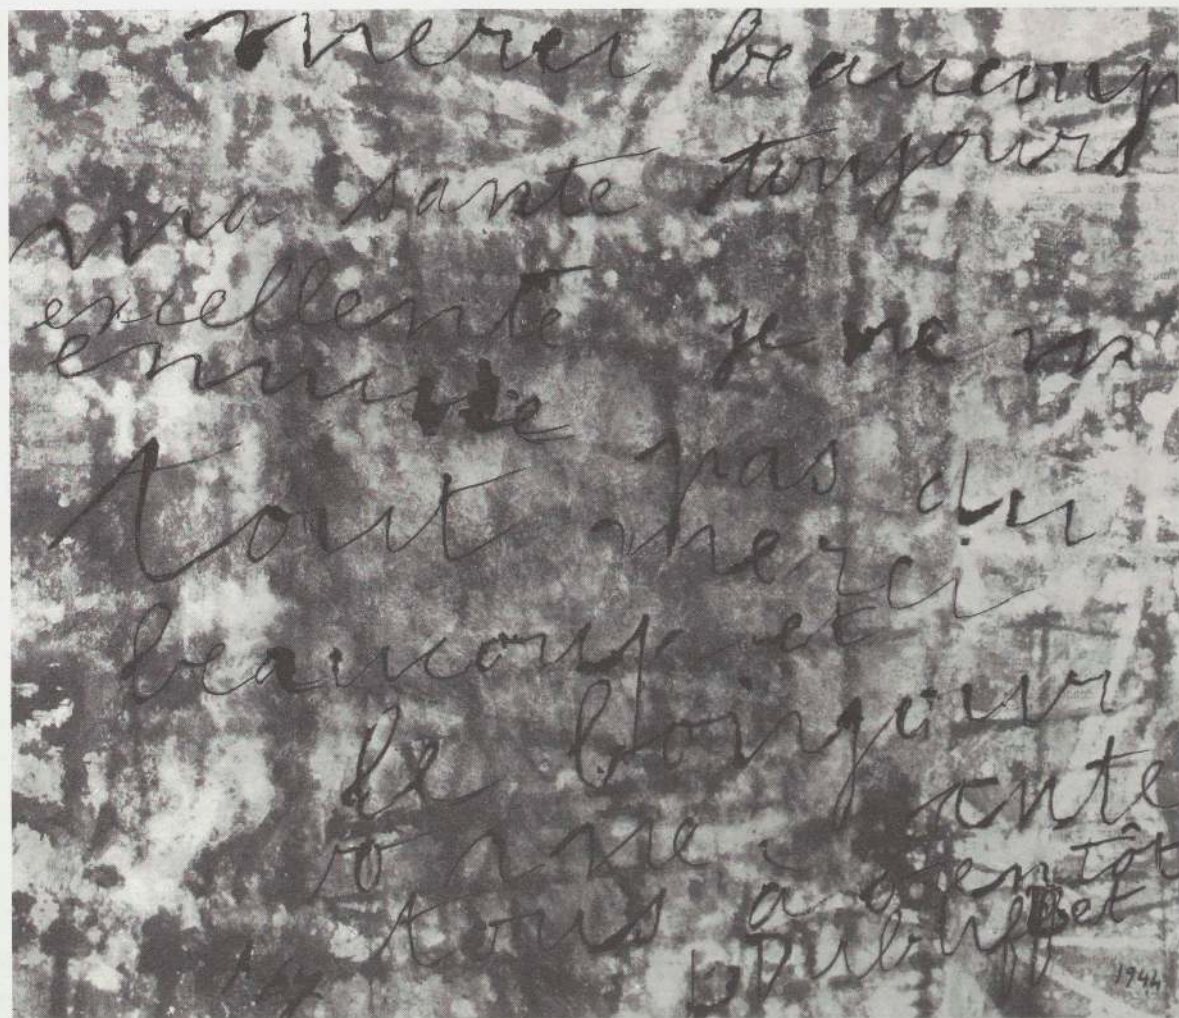 merci beaucoup
ma santé toujours
excellente je ne m'
ennuie
pas du
tout merci
beaucoup et
le bonjour
tous à bientôt
Dubuffet
1944